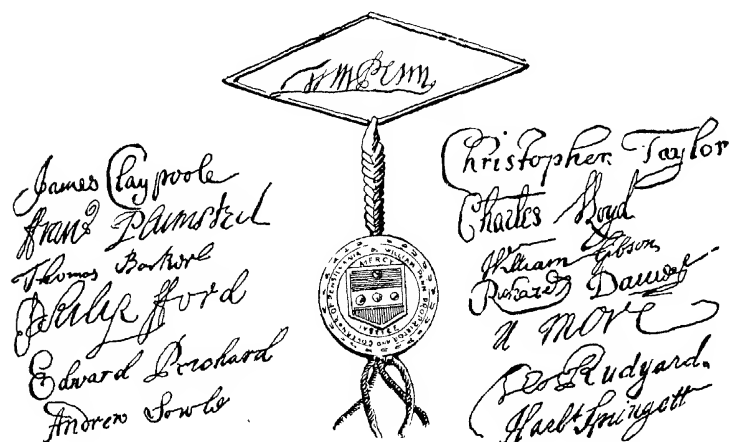 Wm Penn
James Claypoole
Franc Plumsted
Thomas Barker
Philip fford
Edward Prichard
Andrew Sowle
WILLIAM PENN PROPRIETOR AND GOVERNOR OF PENSILVANIA
MERCY
IUSTICE
Christopher Taylor
Charles Lloyd
William Gibson
Richard Davies
n more
Tho Rudyard.
Harbt Springett